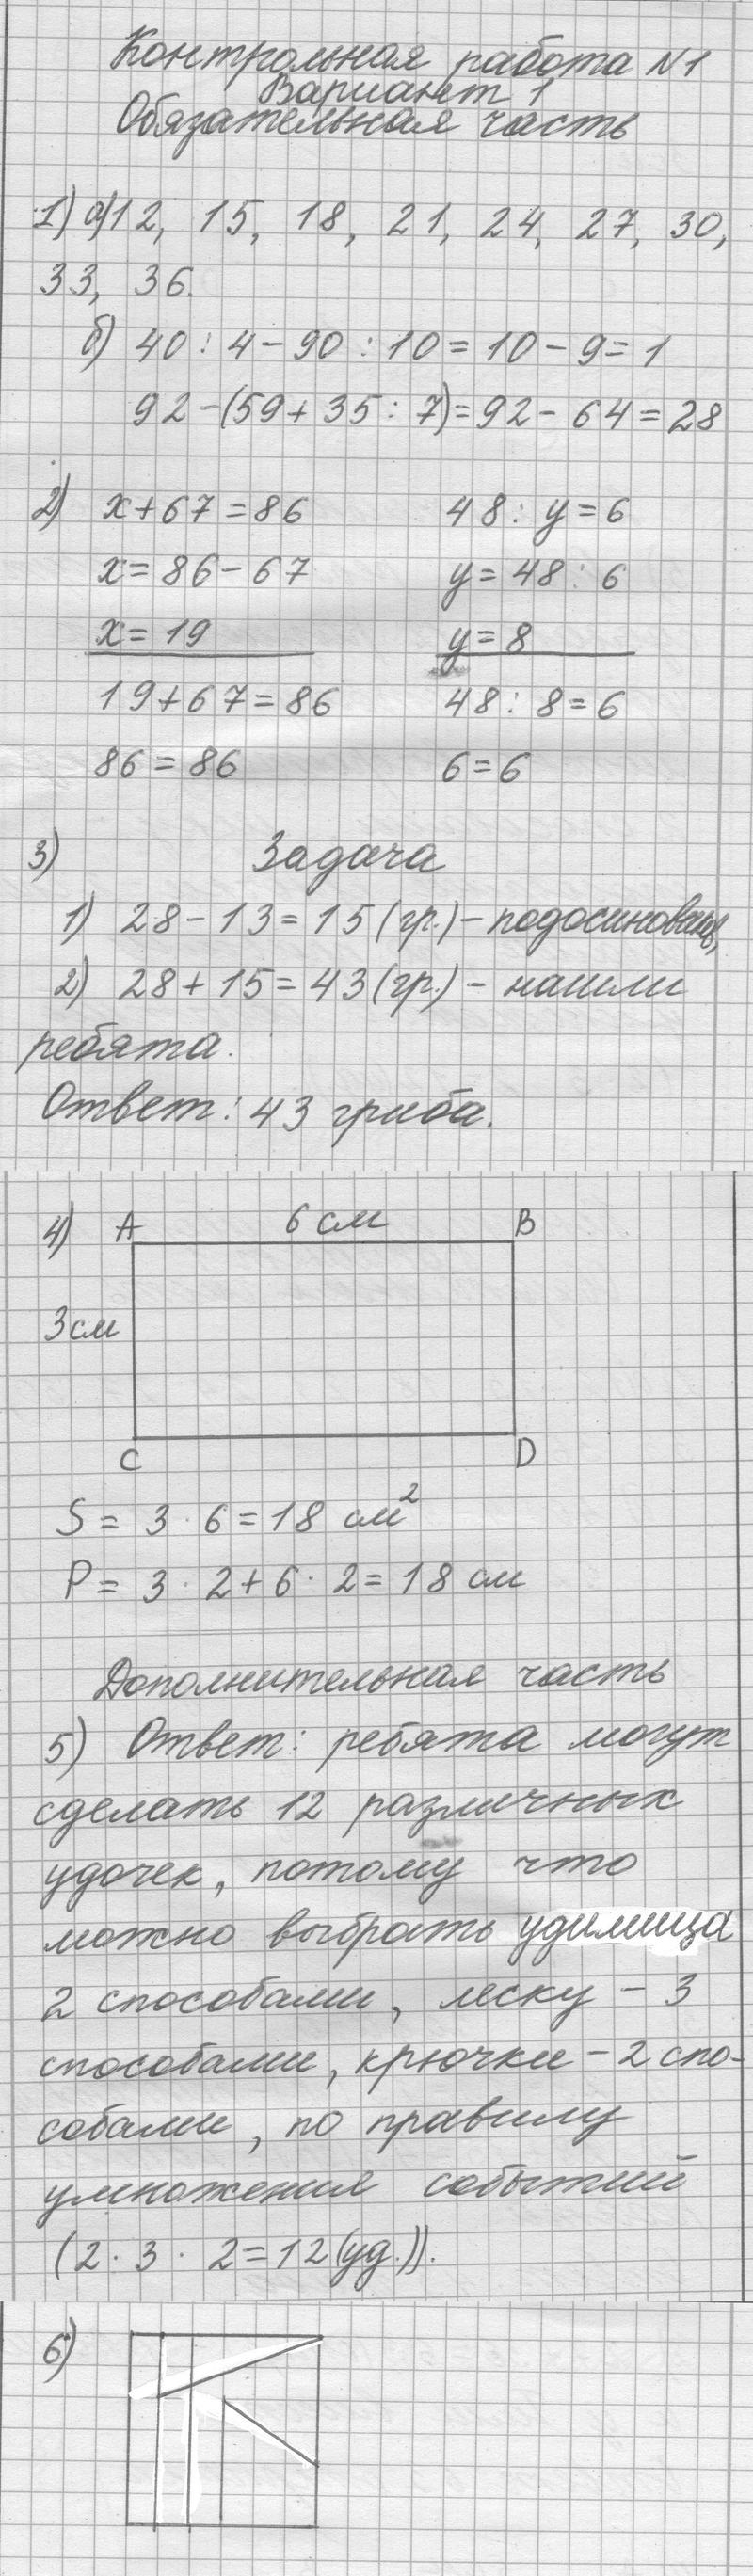 Контрольная работа №1
Вариант 1
Обязательная часть
1) а) 12, 15, 18, 21, 24, 27, 30,
33, 36.
б) 40 : 4 - 90 : 10 = 10 - 9 = 1
92 - (59 + 35 : 7) = 92 - 64 = 28
2) x + 67 = 86
x = 86 - 67
x = 19
19 + 67 = 86
86 = 86
48 : y = 6
y = 48 : 6
y = 8
48 : 8 = 6
6 = 6
3) Задача
1) 28 - 13 = 15 (гр.) - подосиновики,
2) 28 + 15 = 43 (гр.) - нашли
ребята.
Ответ: 43 гриба.
4) A 6 см B
3 см
C D
S = 3 · 6 = 18 см²
P = 3 · 2 + 6 · 2 = 18 см
Дополнительная часть
5) Ответ: ребята могут
сделать 12 различных
удочек, потому что
можно выбрать удилища
2 способами, леску - 3
способами, крючки - 2 спо-
собами, по правилу
умножения событий
(2 · 3 · 2 = 12 (уд.)).
6)